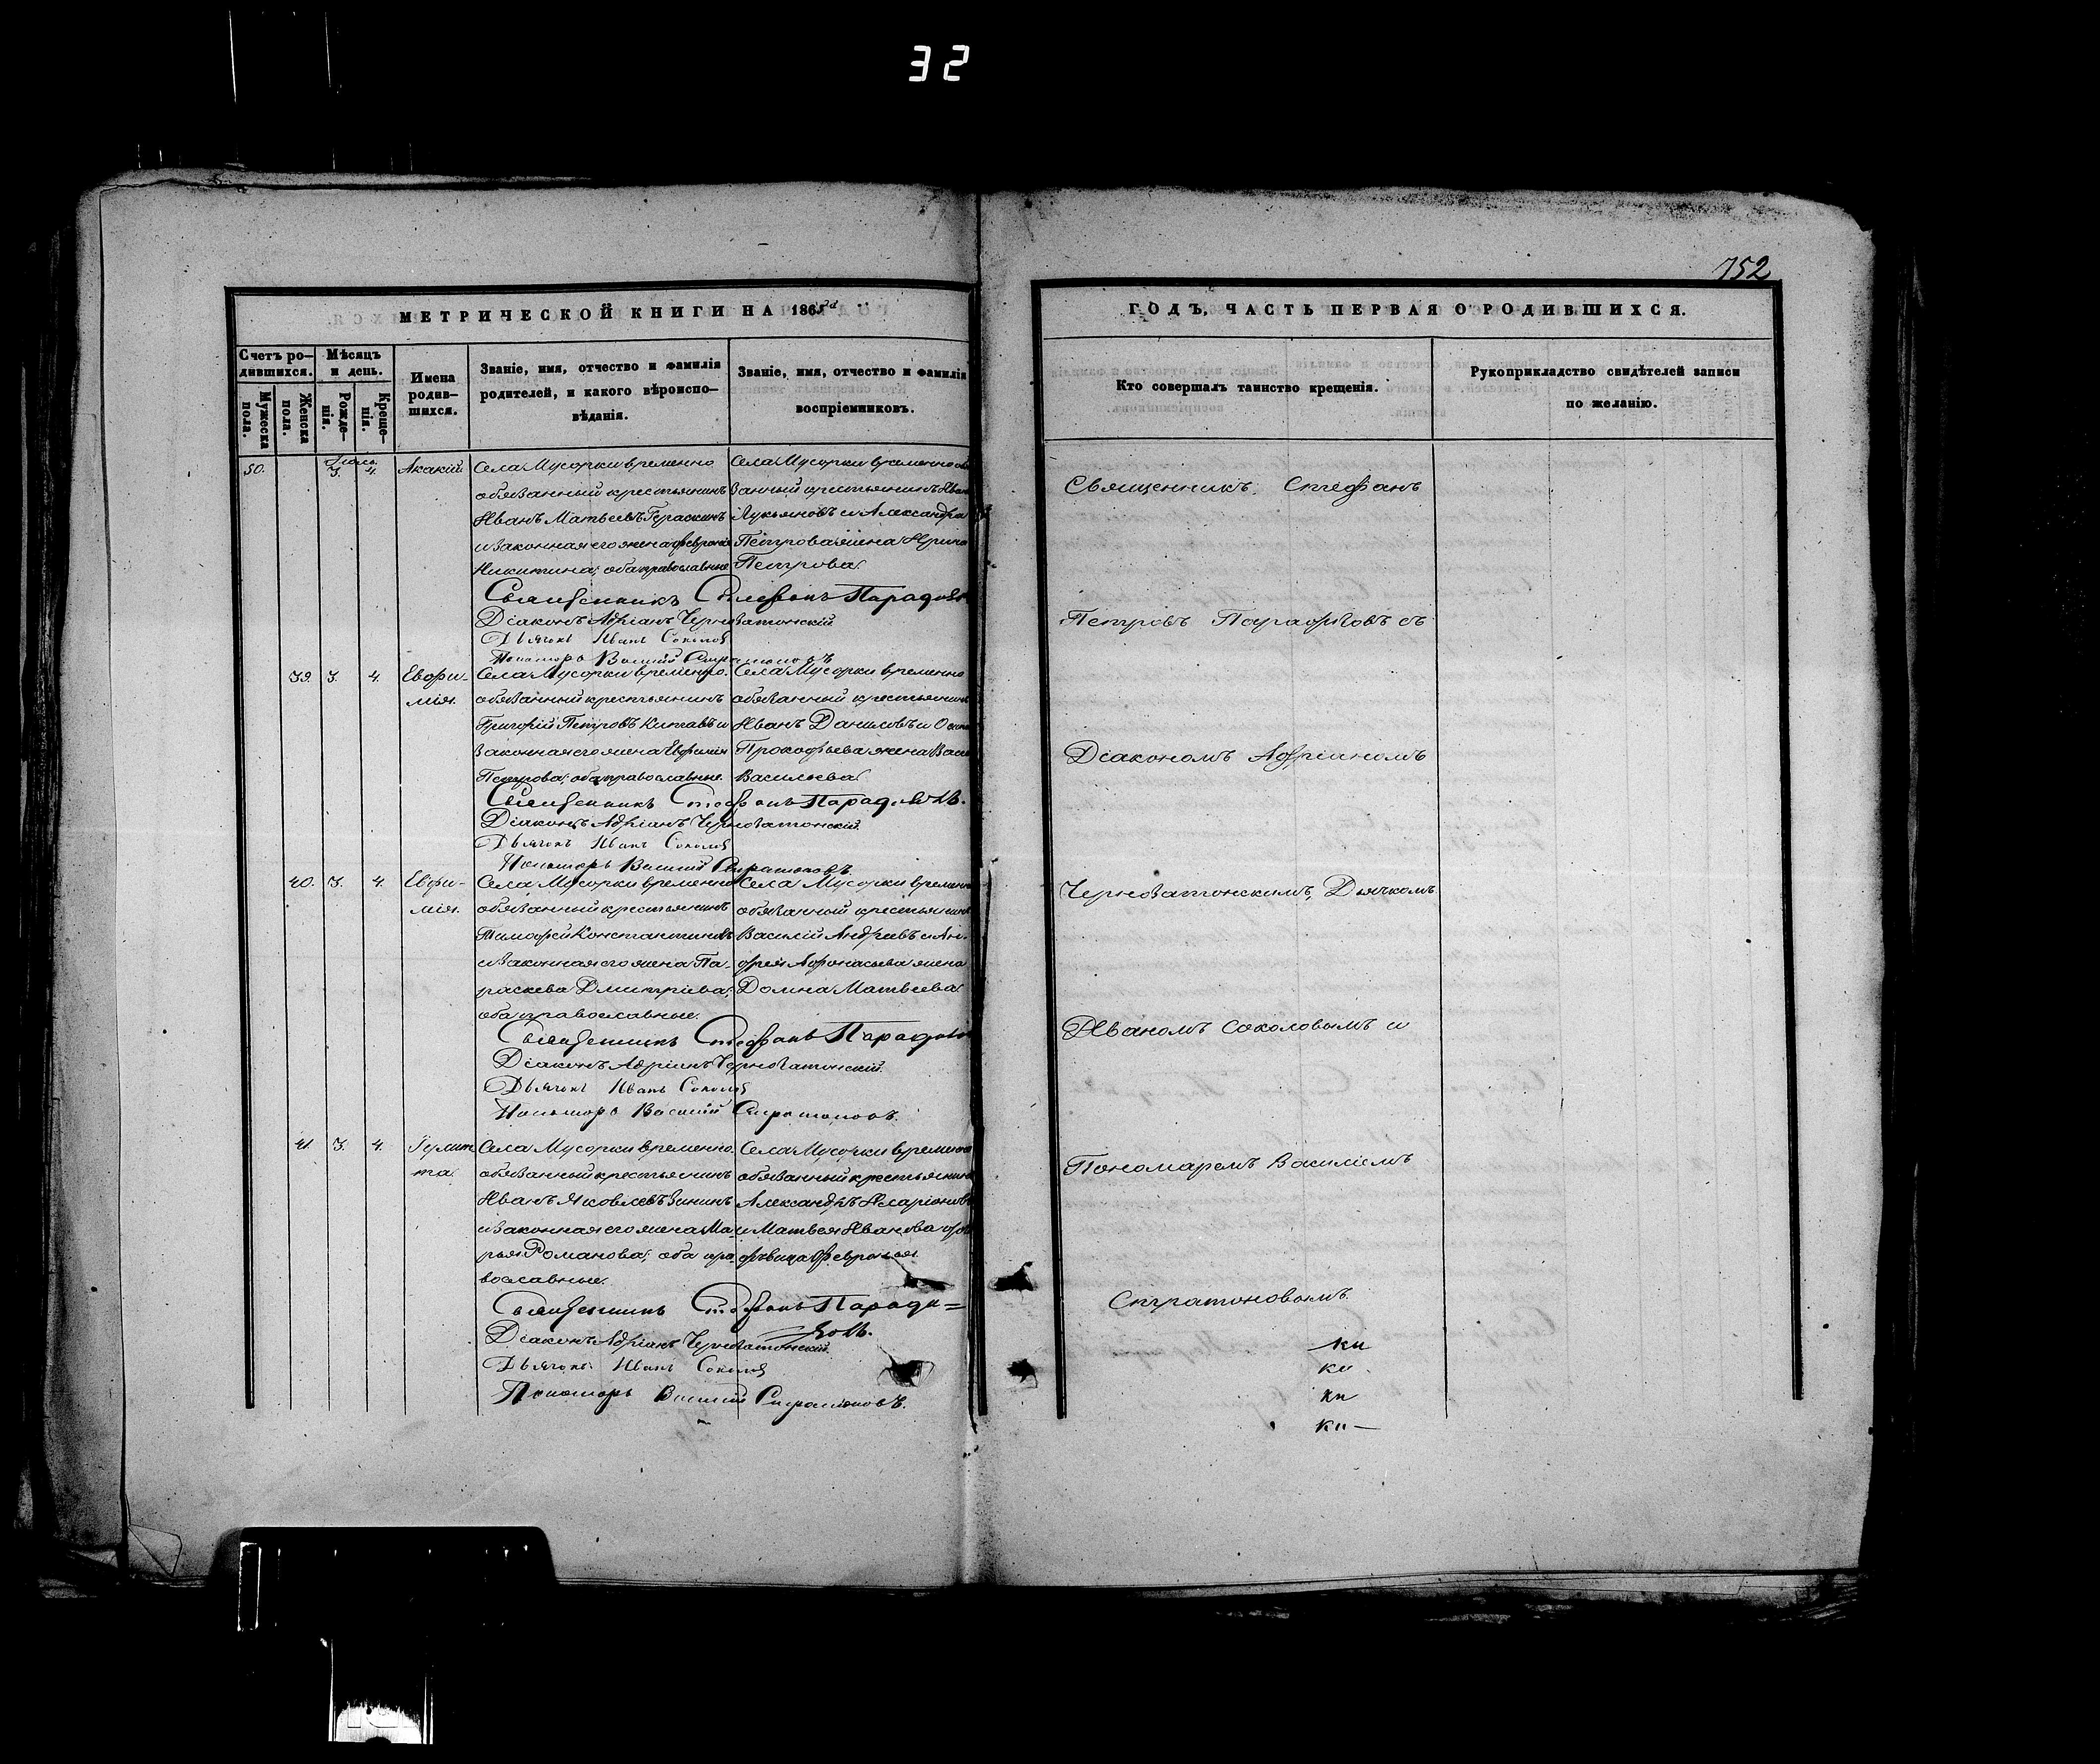 32
752
МЕТРИЧЕСКОЙ КНИГИ НА 186
ГОДЪ, ЧАСТЬ ПЕРВАЯ О РОДИВШИХСЯ.
Счетъ ро-
дившихся.
Мужеска
пола.
Женска
пола.
Мѣсяцъ
и день.
Рожде-
нія.
Креще-
нія.
Имена
родив-
шихся.
Званіе, имя, отчество и фамилія
родителей, и какого вѣроиспо-
вѣданія.
Званіе, имя, отчество и фамилія
воспріемниковъ.
Кто совершалъ таинство крещенія.
Рукоприкладство свидѣтелей записи
по желанію.
50.
3. 4.
Акакій.
Села Мусорки временно
обязанный крестьянинъ
Иванъ Матвеевъ Гераскинъ
и законная его жена Февронія
Никитина; оба православные
Села Мусорки временно обя
занный крестьянинъ Иванъ
Лукьяновъ и Александра
Петрова жена Ирина
Петрова.
Священникъ Стефанъ Парадизовъ
Діаконъ Адріанъ Чернозатонскій
Дьячокъ Иванъ Соколов
Пономарь Василій Стратоновъ
39. 3. 4.
Евфи-
мія.
Села Мусорки временно.
обязанный крестьянинъ
Григорій Петровъ Китавъ и
законная его жена Евфимія
Петрова; оба православные.
Села Мусорки временно
обязанный крестьянинъ
Иванъ Даниловъ и
Прокофьева жена
Васильева.
Священникъ Стефанъ Парадизовъ.
Діаконъ Адріанъ Чернозатонскій.
Дьячокъ Иванъ Соколов
Пономарь Василій Стратоновъ
40. 3. 4.
Евфи-
мія.
Села Мусорки временно
обязанный крестьянинъ
Тимофей Константиновъ
и законная его жена Па-
раскева Дмитріева;
оба православные.
Села Мусорки временно
обязанный крестьянинъ
Василій Андреевъ и Ан-
дрея Афонасьева жена
Домна Матвеева.
Священникъ Стефанъ Парадизовъ
Діаконъ Адріанъ Чернозатонскій.
Дьячокъ Иванъ Соколов
Пономарь Василій Стратоновъ.
41. 3. 4.
Іулит
та.
Села Мусорки временно.
обязанный крестьянинъ
Иванъ Яковлевъ Зининъ
и законная его жена Ма
рья Романова; оба пра
вославные.
Села Мусорки временно
обязанный крестьянинъ
Александръ Иларіоновъ
и Матвея Иванова дочь
девица Февронья
Священникъ Стефанъ Паради=
зовъ.
Діаконъ Адріанъ Чернозатонскій.
Дьячокъ Иванъ Соколов
Пономарь Василій Стратоновъ.
Священникъ Стефанъ
Петровъ Парадизовъ съ
Діакономъ Адріаномъ
Чернозатонскимъ, Дьячкомъ
Иваномъ Соколовымъ и
Пономаремъ Василіемъ
Стратоновымъ.